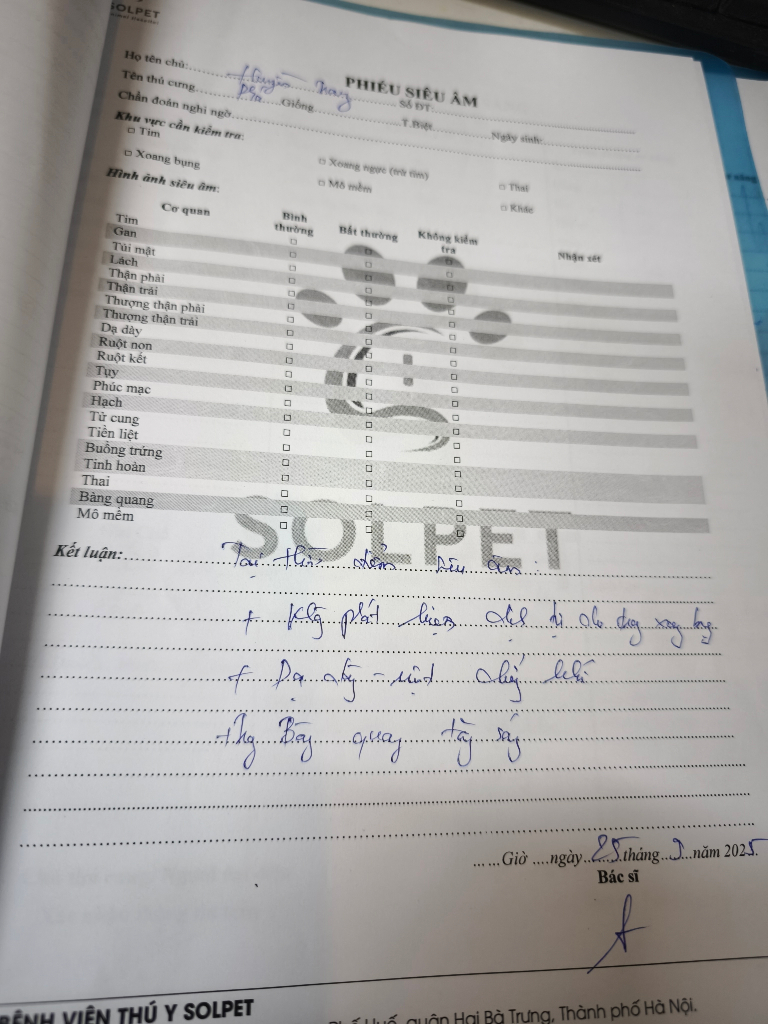 SOLPET
PHIẾU SIÊU ÂM
Họ tên chủ: Huyền Trang Số ĐT:
Tên thú cưng Giống T.Biệt Ngày sinh:
Chẩn đoán nghi ngờ
Khu vực cần kiểm tra:
□ Tim □ Xoang ngực (trừ tim) □ Thai
□ Xoang bụng □ Mô mềm □ Khác
Hình ảnh siêu âm:
Cơ quan Bình thường Bất thường Không kiểm tra Nhận xét
Tim
Gan
Túi mật
Lách
Thận phải
Thận trái
Thượng thận phải
Thượng thận trái
Dạ dày
Ruột non
Ruột kết
Tụy
Phúc mạc
Hạch
Tử cung
Tiền liệt
Buồng trứng
Tinh hoàn
Thai
Bàng quang
Mô mềm
SOLPET
Kết luận: Tại thời điểm siêu âm:
+ Kg phát hiện xoang
+ Dạ dày - ruột
+ Bàng quang
... ...Giờ ....ngày 25 tháng 9 năm 2025.
Bác sĩ
BỆNH VIỆN THÚ Y SOLPET
Phố Huế, quận Hai Bà Trưng, Thành phố Hà Nội.